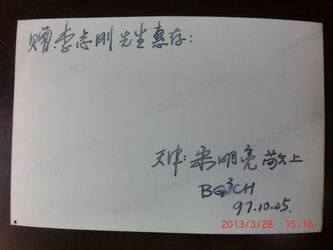 赠:李志刚先生惠存:
天津:宋明亮敬上
BG3CH
97.10.25.
2013/3/28 15:16